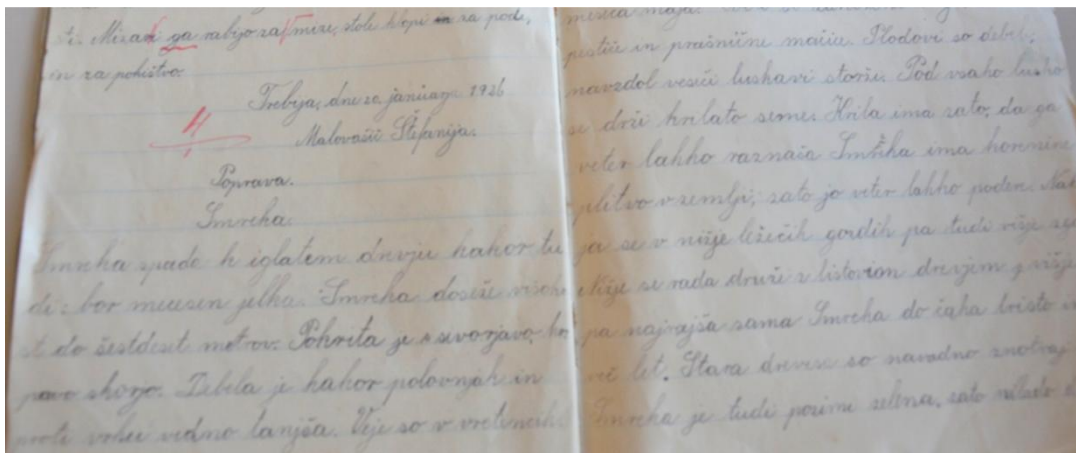 te. Mizari ga rabijo za mize, stole klopi in za pode,
in za pohištvo.
Trebija, dne 20. januarja 1926
Malovašić Štefanija.
4
Poprava.
Smreka.
Smreka spada k iglatem drevju kakor tu
di: bor mecesen jelka. Smreka doseže visoko
st do šestdeset metrov. Pokrita je s sivorjavo,
pavo skorjo. Debela je kakor polovnjak in
proti vrhu vedno tanjša. Veje so v vretencih
meseca maja.
pestiče in prašnične mačice. Plodovi so debeli,
navzdol viseči luskavi storži. Pod vsako lusko
se drži krilato seme. Krila ima zato, da ga
veter lahko raznaša Smreka ima korenine
plitvo v zemlji; zato jo veter lahko podere.
ja se v nižje ležečih gordih pa tudi višje
Nižje se rada druži z listovjan drevjem z višje
pa najrajša sama Smreka do čaka tristo
več let. Stara drevesa so navadno znotraj
Smreka je tudi pozimi zelena, zato